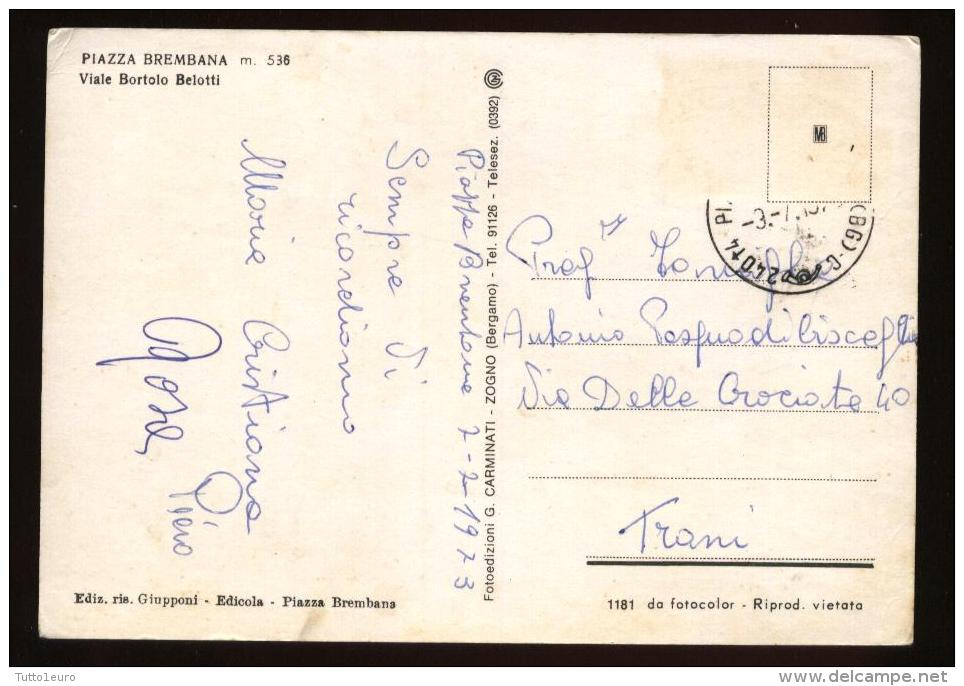 PIAZZA BREMBANA m. 536
Viale Bortolo Belotti
Piazza Brembana 2-2-1973
Sempre Vi
ricordiamo
Maria Cristiana
Rosa, Piero
Fotoedizioni G. CARMINATI - ZOGNO (Bergamo) - Tel. 91126 - Telesez. (0392)
-3.-7.197
24014 PI (BG)
Prof
Antonio Pasqua di Bisceglie
Via Delle Crociate 40
Trani
Ediz. ris. Giupponi - Edicola - Piazza Brembana
1181 da fotocolor - Riprod. vietata
Tutto1euro